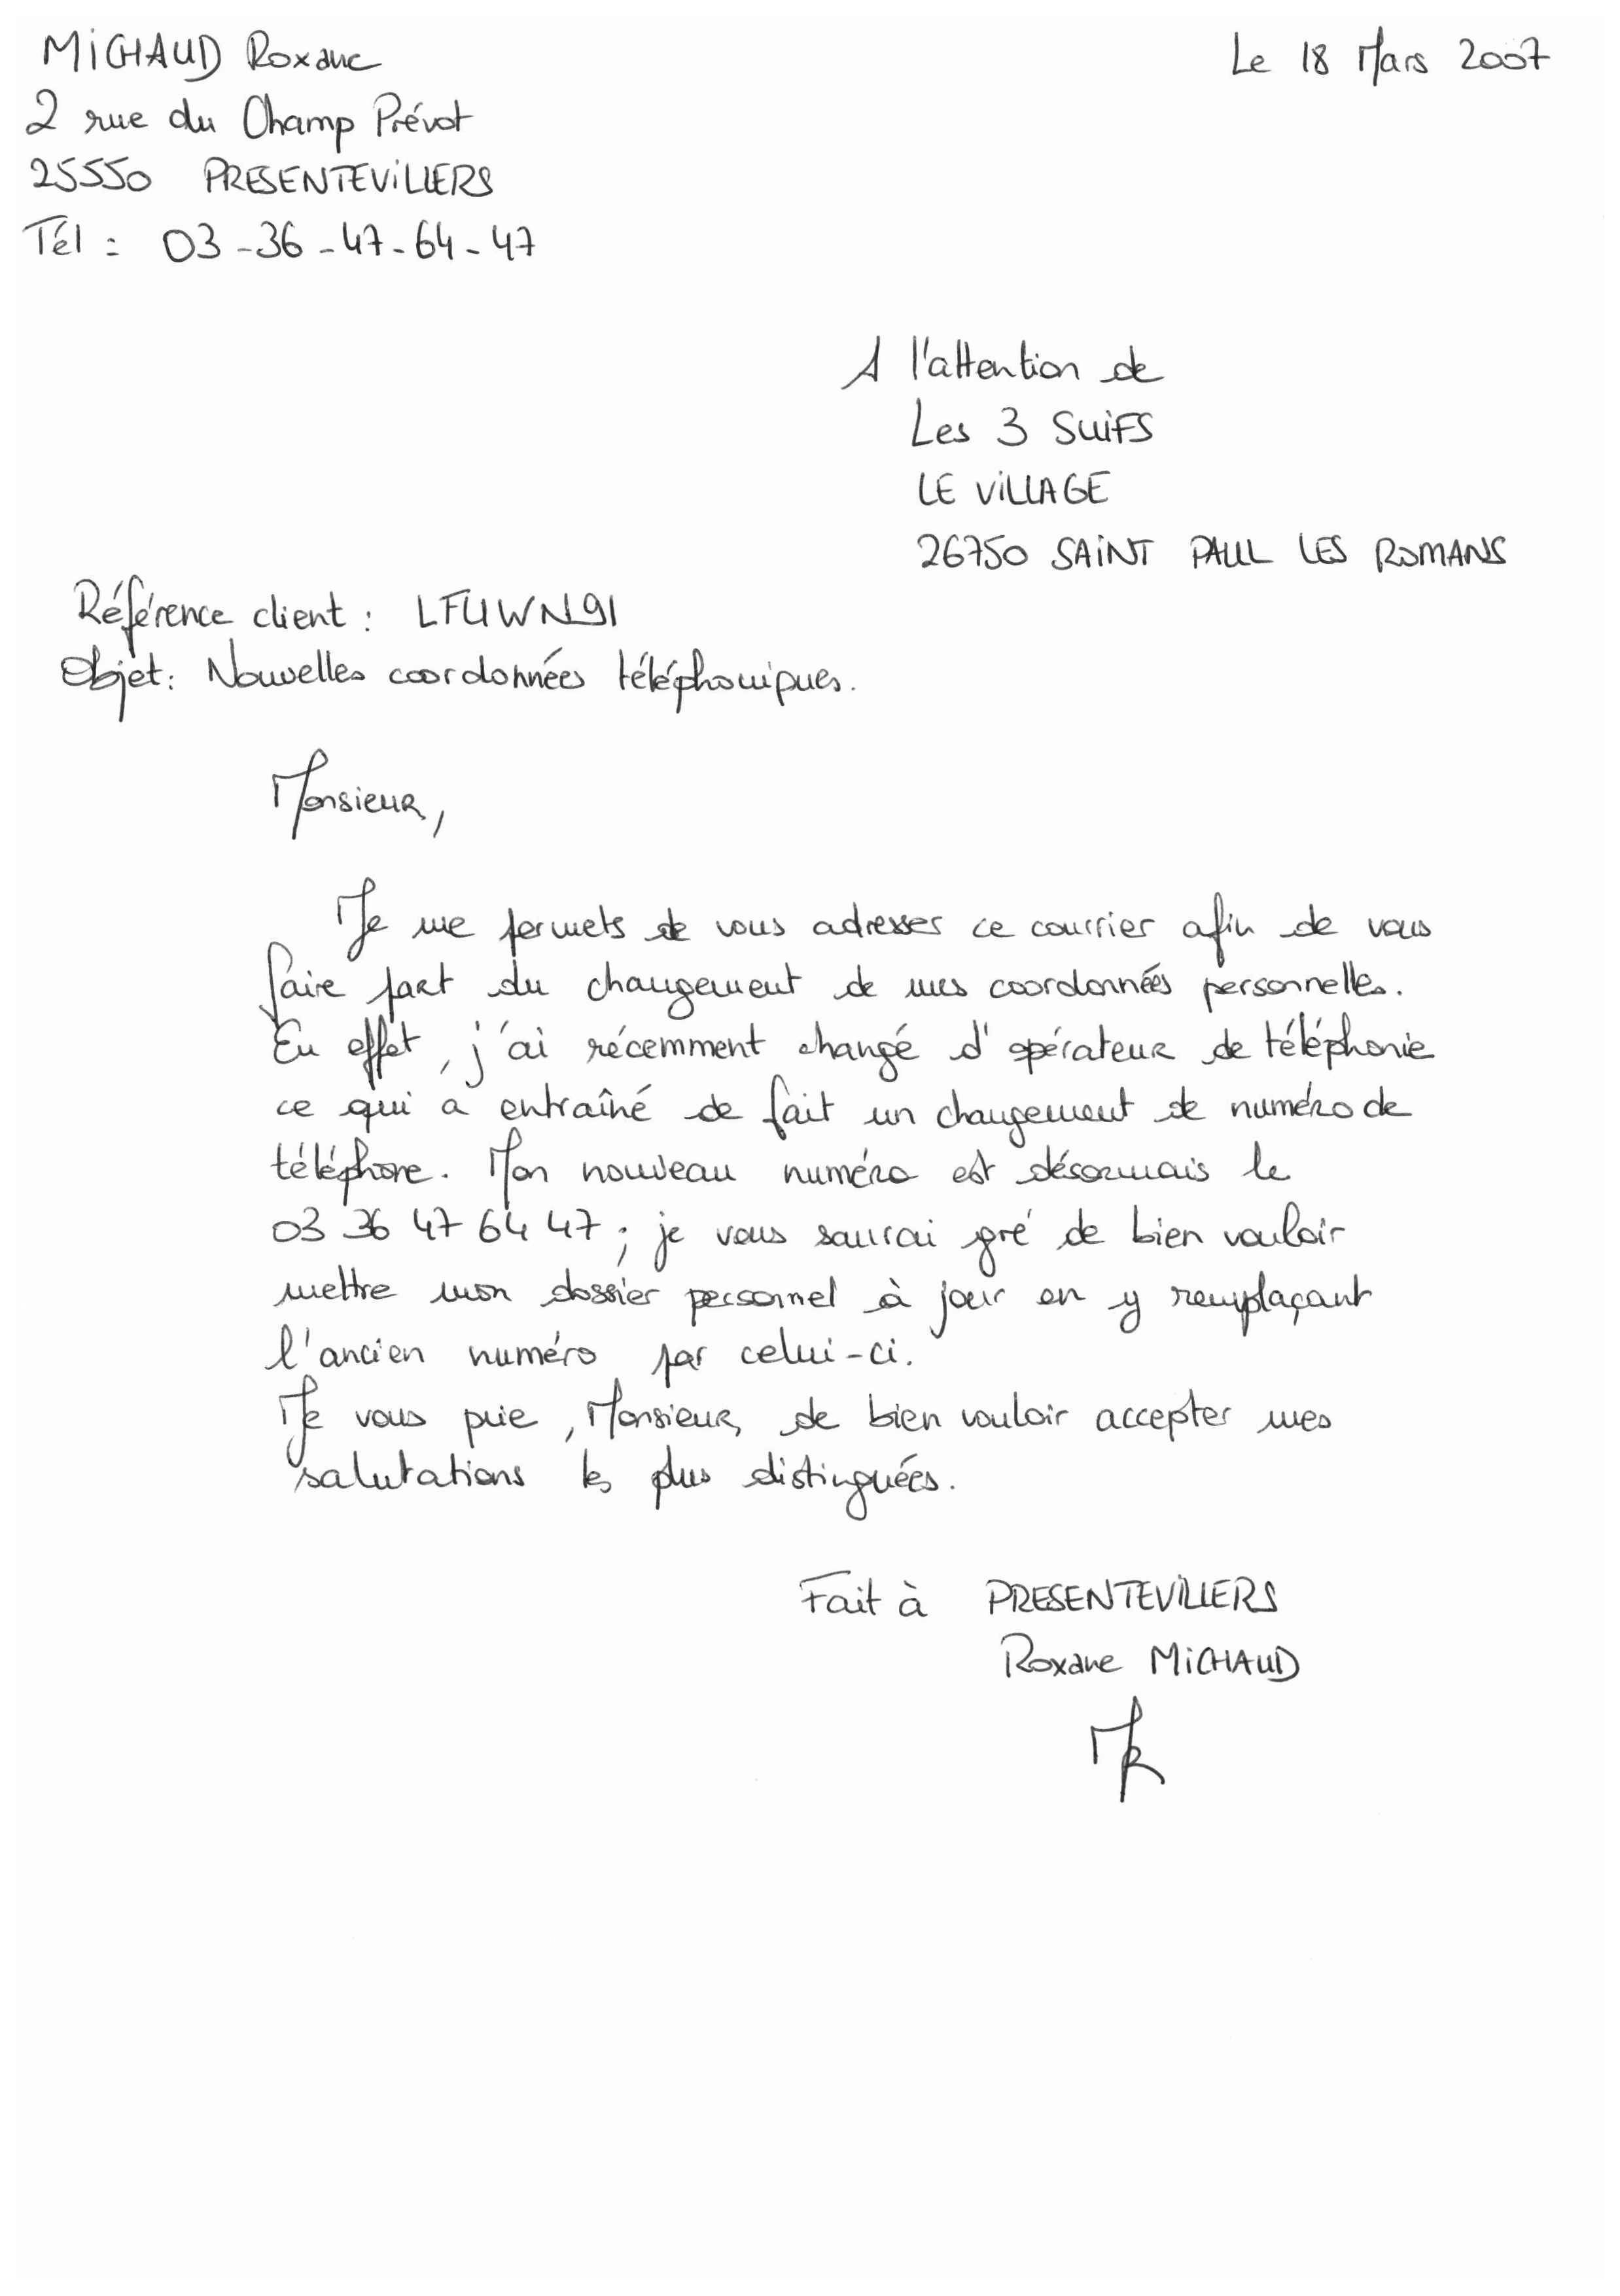 MICHAUD Roxane
Le 18 Mars 2007
2 rue du Champ Prévot
25550 PRESENTEVILLERS
Tél : 03-36-47-64-47
A l'attention de
Les 3 SUIFS
LE VILLAGE
26750 SAINT PAUL LES ROMANS
Référence client : LFUWN91
Objet : Nouvelles coordonnées téléphoniques.
Monsieur,
Je me permets de vous adresser ce courrier afin de vous
faire part du changement de mes coordonnées personnelles.
En effet, j'ai récemment changé d'opérateur de téléphonie
ce qui a entraîné de fait un changement de numéro de
téléphone. Mon nouveau numéro est désormais le
03 36 47 64 47 ; je vous saurai gré de bien vouloir
mettre mon dossier personnel à jour en y remplaçant
l'ancien numéro par celui-ci.
Je vous prie, Monsieur, de bien vouloir accepter mes
salutations les plus distinguées.
Fait à PRESENTEVILLERS
Roxane MICHAUD
MR